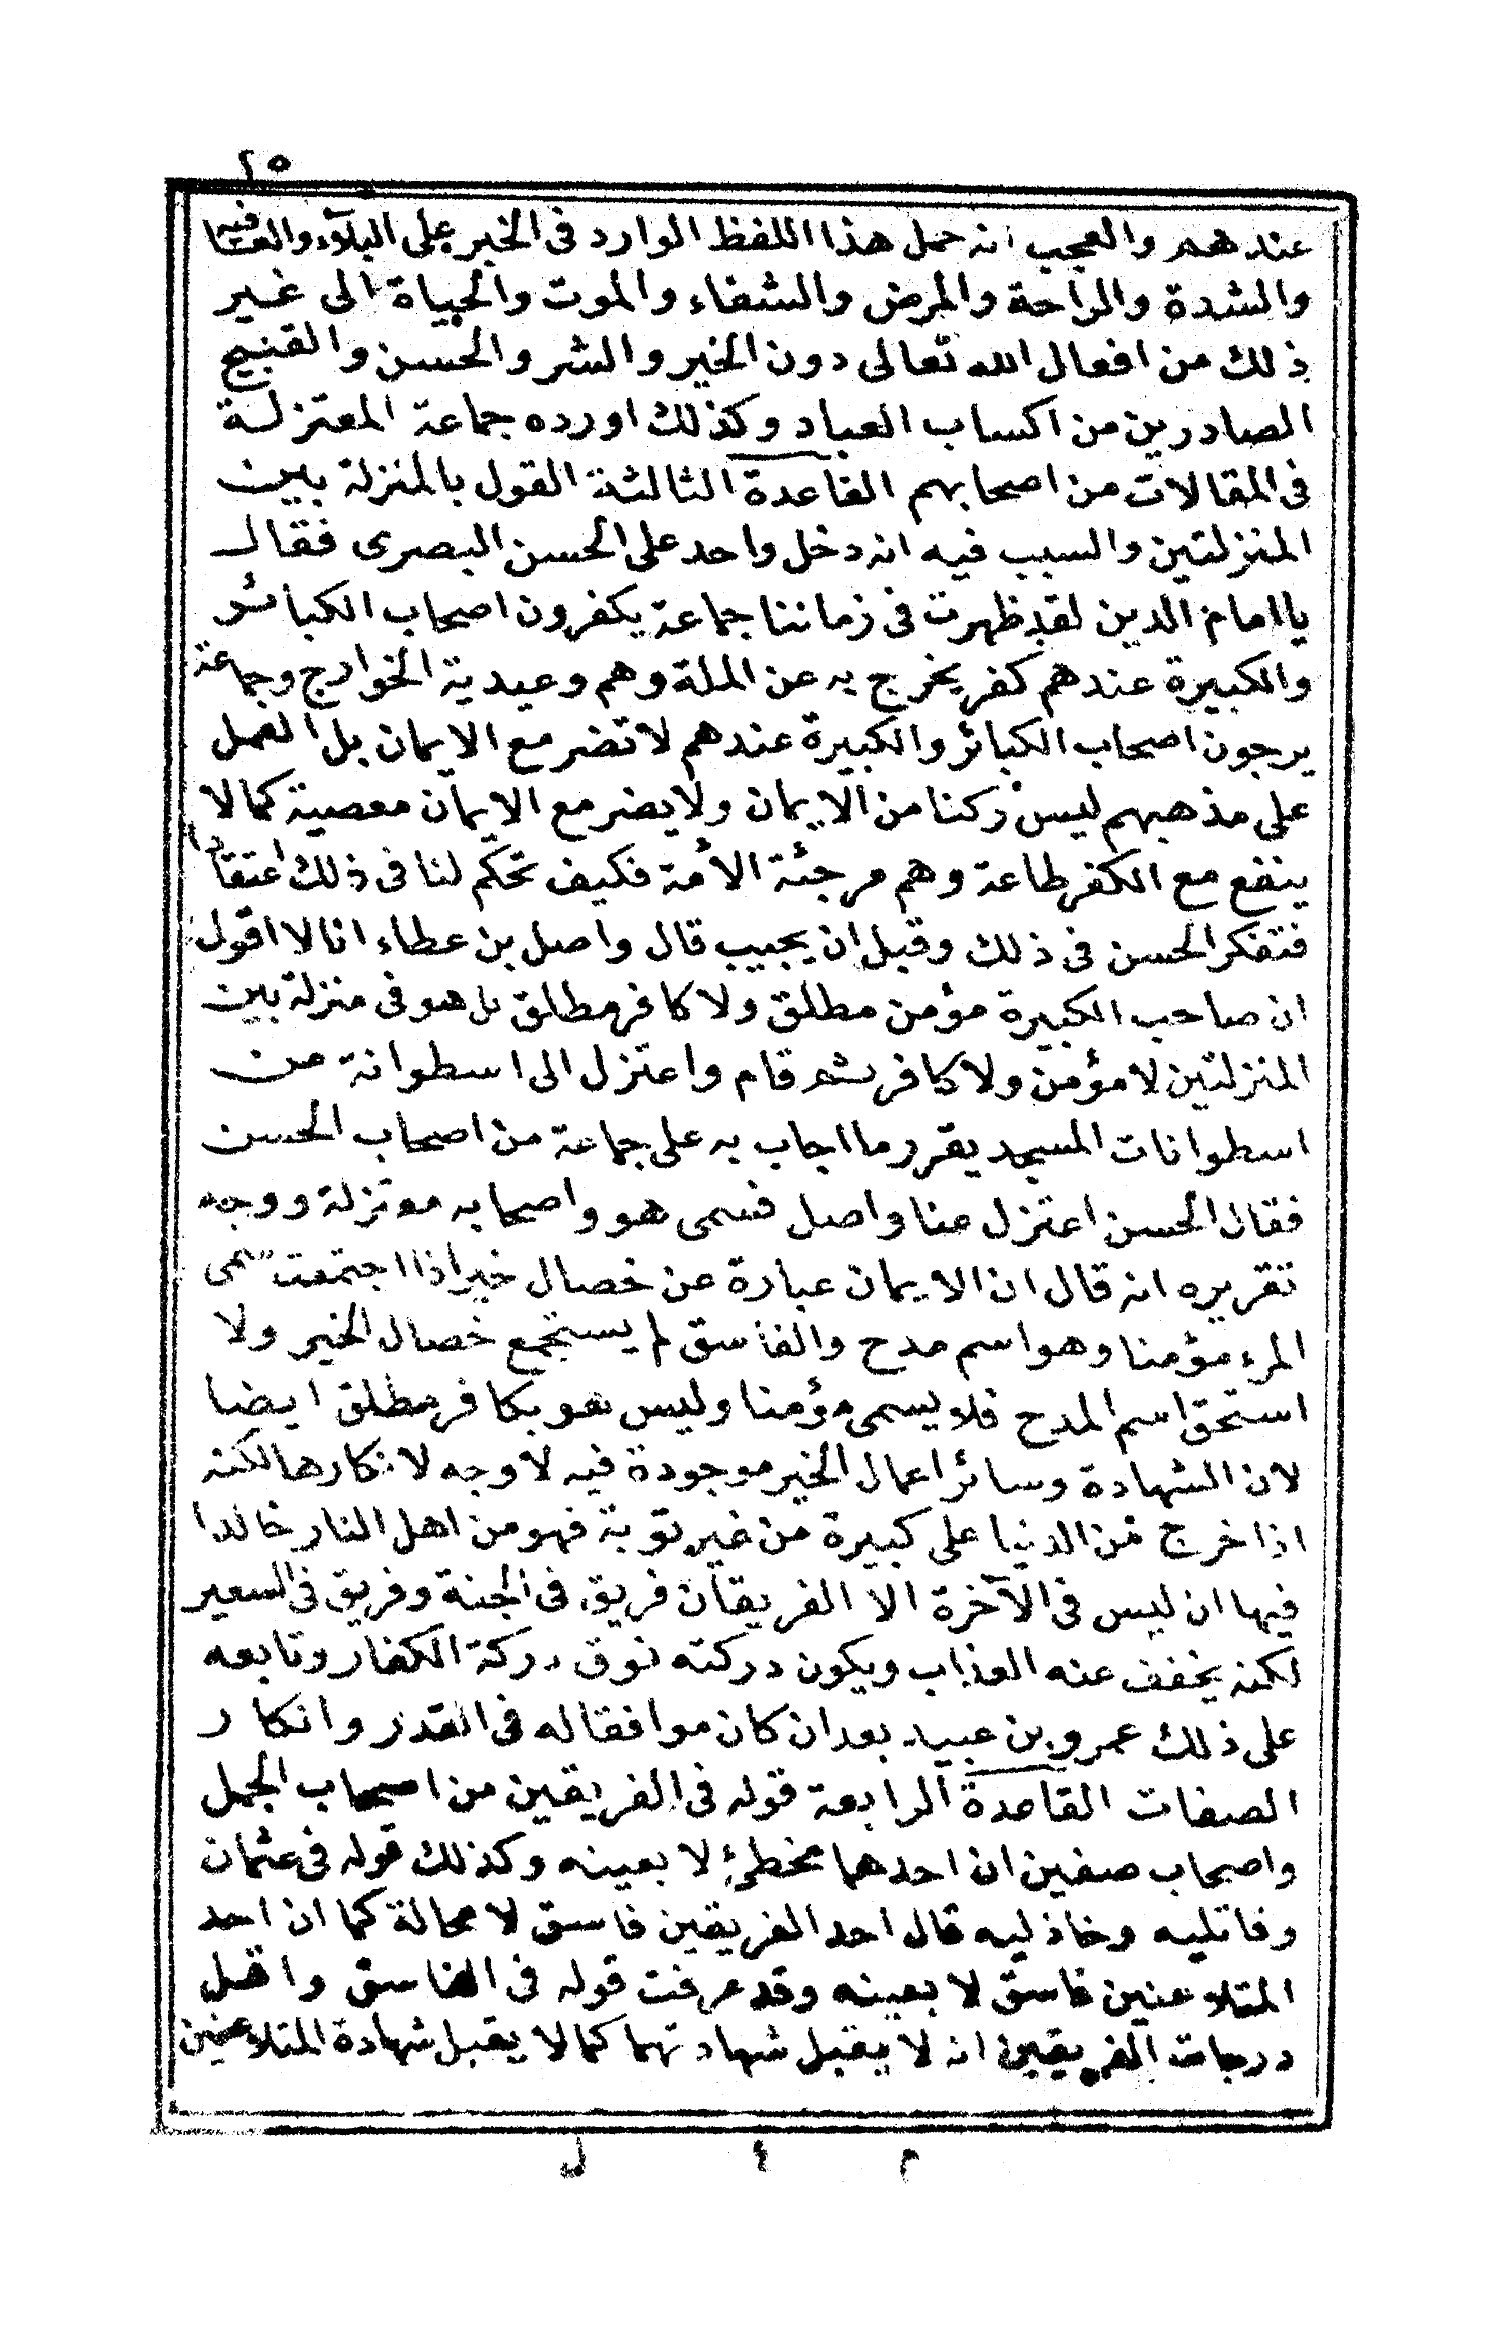 ٢٥
عندهم والعجب انه حمل هذا اللفظ الوارد فى الخبر على البلآء والعافية
والشدة والراحة والمرض والشفاء والموت والحياة الى غير
ذلك من افعال الله تعالى دون الخير والشر والحسن والقبيح
الصادرين من اكساب العباد وكذلك اورده جماعة المعتزلة
فى المقالات من اصحابهم القاعدة الثالثة القول بالمنزلة بين
المنزلتين والسبب فيه انه دخل واحد على الحسن البصرى فقال
يا امام الدين لقد ظهرت فى زماننا جماعة يكفرون اصحاب الكبائر
والكبيرة عندهم كفر يخرج به عن الملة وهم وعيدية الخوارج وجماعة
يرجون اصحاب الكبائر والكبيرة عندهم لا تضر مع الايمان بل العمل
على مذهبهم ليس ركنا من الايمان ولا يضر مع الايمان معصية كما لا
ينفع مع الكفر طاعة وهم مرجئة الأمة فكيف تحكم لنا فى ذلك اعتقادا
فتفكر الحسن فى ذلك وقبل ان يجيب قال واصل بن عطاء انا لا اقول
ان صاحب الكبيرة مؤمن مطلق ولا كافر مطلق بل هو فى منزلة بين
المنزلتين لا مؤمن ولا كافر ثم قام واعتزل الى اسطوانة من
اسطوانات المسجد يقرر ما اجاب به على جماعة من اصحاب الحسن
فقال الحسن اعتزل عنا واصل فسمى هو واصحابه معتزلة ووجه
تقريره انه قال ان الايمان عبارة عن خصال خير اذا اجتمعت سمى
المرء مؤمنا وهو اسم مدح والفاسق لم يستجمع خصال الخير ولا
استحق اسم المدح فلا يسمى مؤمنا وليس هو بكافر مطلق ايضا
لان الشهادة وسائر اعمال الخير موجودة فيه لا وجه لانكارها لكنه
اذا خرج من الدنيا على كبيرة من غير توبة فهو من اهل النار خالدا
فيها ان ليس فى الآخرة الا الفريقان فريق فى الجنة وفريق فى السعير
لكنه يخفف عنه العذاب ويكون دركته فوق دركة الكفار وتابعه
على ذلك عمرو بن عبيد بعد ان كان موافقا له فى القدر وانكار
الصفات القاعدة الرابعة قوله فى الفريقين من اصحاب الجمل
واصحاب صفين ان احدهما مخطئ لا بعينه وكذلك قوله فى عثمان
وقاتليه وخاذليه قال احد الفريقين فاسق لا محالة كما ان احد
المتلاعنين فاسق لا بعينه وقد عرفت قوله فى الفاسق واقل
درجات الفريقين انه لا يقبل شهادتهما كما لا يقبل شهادة المتلاعنين
م ٤ ل